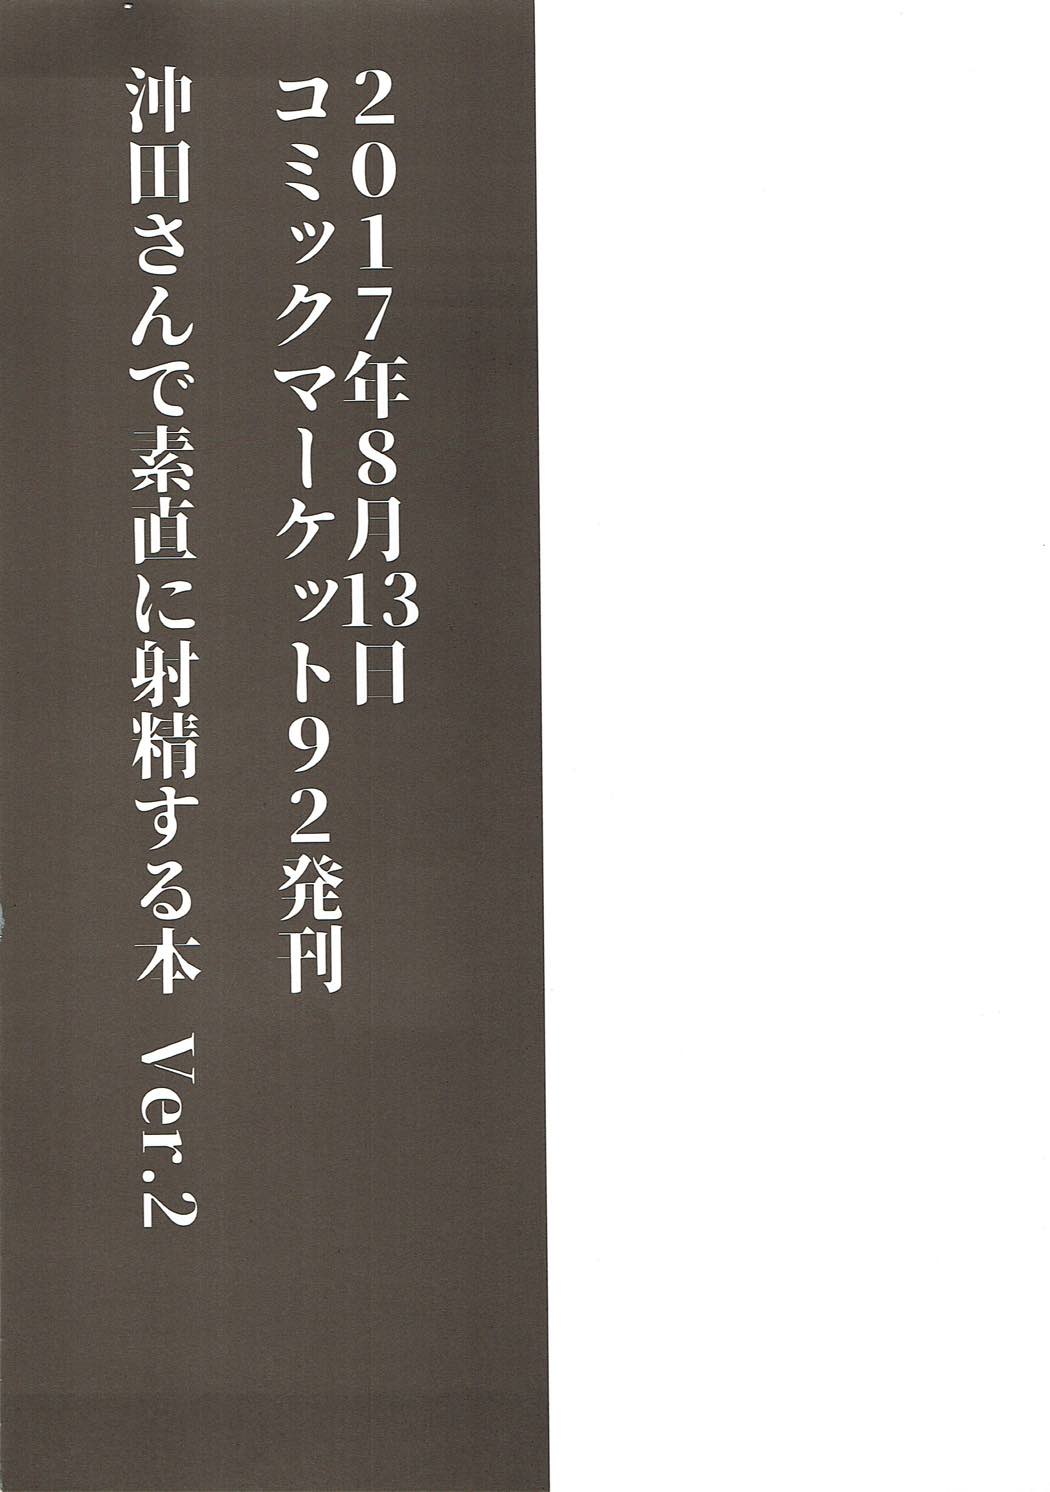 2017年8月13日
コミックマーケット92発刊
沖田さんで素直に射精する本 Ver.2